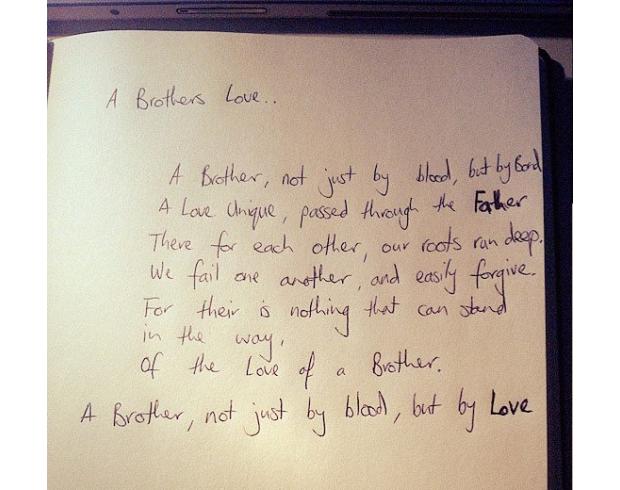 A Brothers Love..
A Brother, not just by blood, but by Bond
A Love Unique, passed through the Father
There for each other, our roots run deep.
We fail one another, and easily forgive.
For their is nothing that can stand
in the way,
Of the Love of a Brother.
A Brother, not just by blood, but by Love